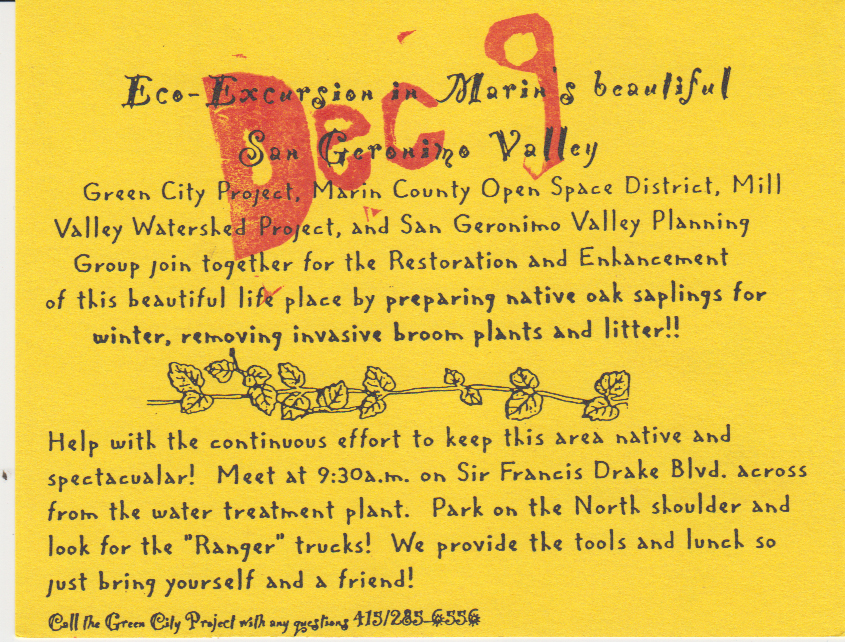 Dec 9
Eco-Excursion in Marin's beautiful
San Geronimo Valley
Green City Project, Marin County Open Space District, Mill
Valley Watershed Project, and San Geronimo Valley Planning
Group join together for the Restoration and Enhancement
of this beautiful life place by preparing native oak saplings for
winter, removing invasive broom plants and litter!!
Help with the continuous effort to keep this area native and
spectacualar! Meet at 9:30a.m. on Sir Francis Drake Blvd. across
from the water treatment plant. Park on the North shoulder and
look for the "Ranger" trucks! We provide the tools and lunch so
just bring yourself and a friend!
Call the Green City Project with any questions 415/285-6556